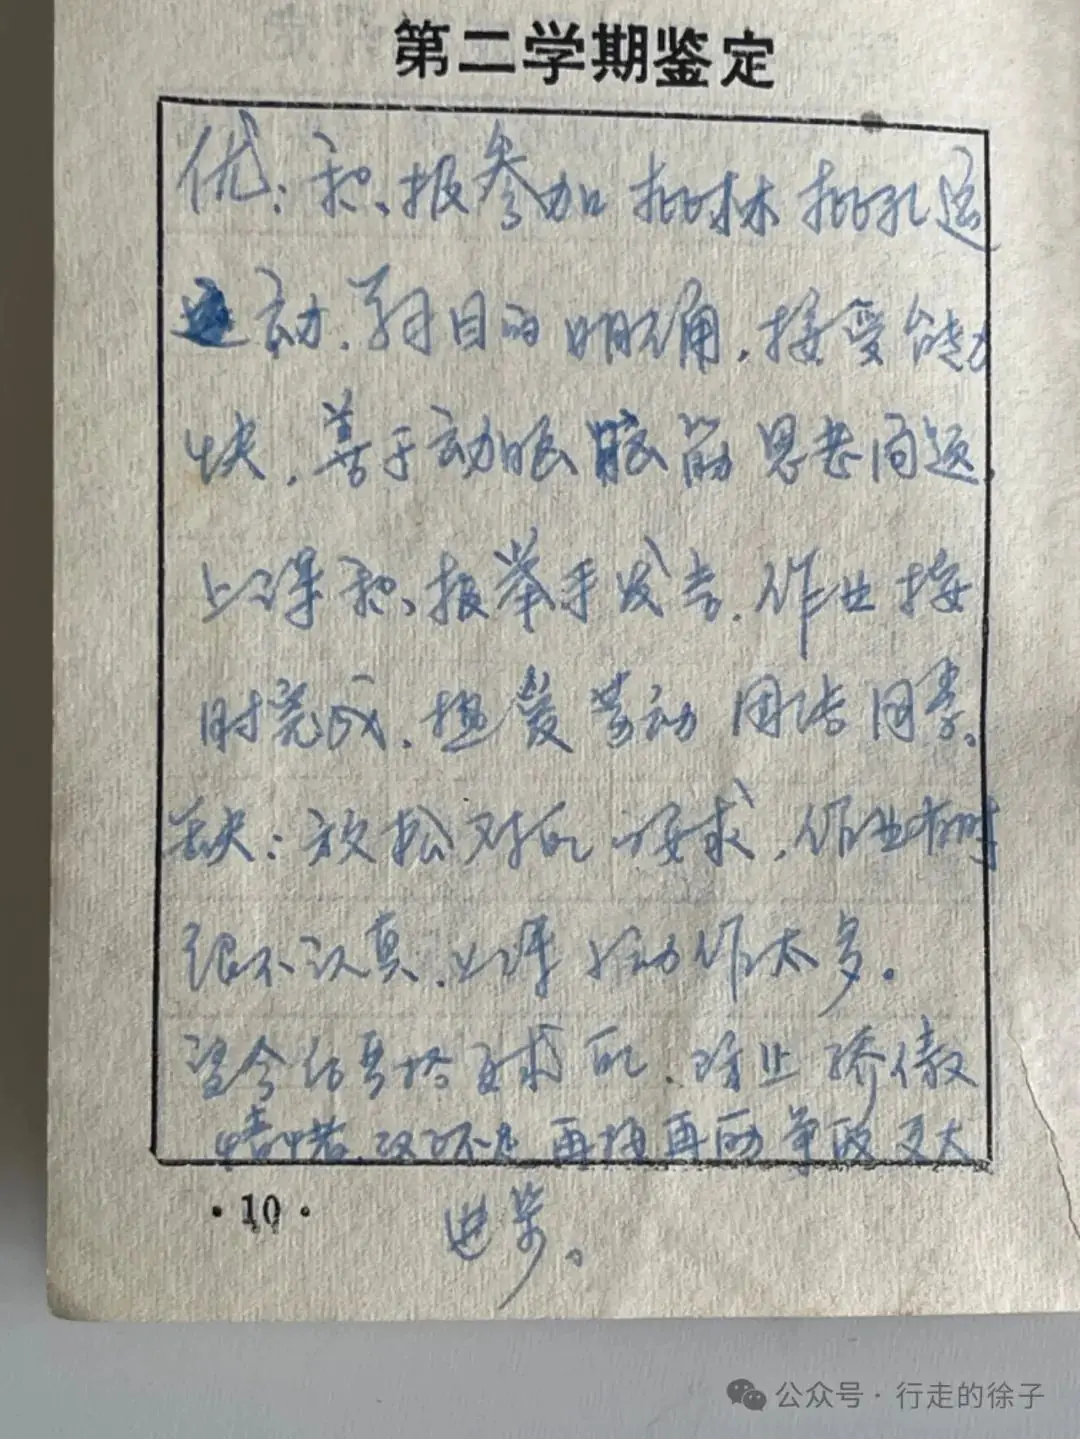 第二学期鉴定
优：积极参加批林批孔运
动，学习目的明确，接受能力
快，善于动脑筋思考问题，
上课积极举手发言，作业按
时完成，热爱劳动团结同学。
缺：放松对自己要求，作业有时
很不认真，上课小动作太多。
望今后严格要求自己，防止骄傲
再接再励争取更大
进步。
·10·
公众号·行走的徐子